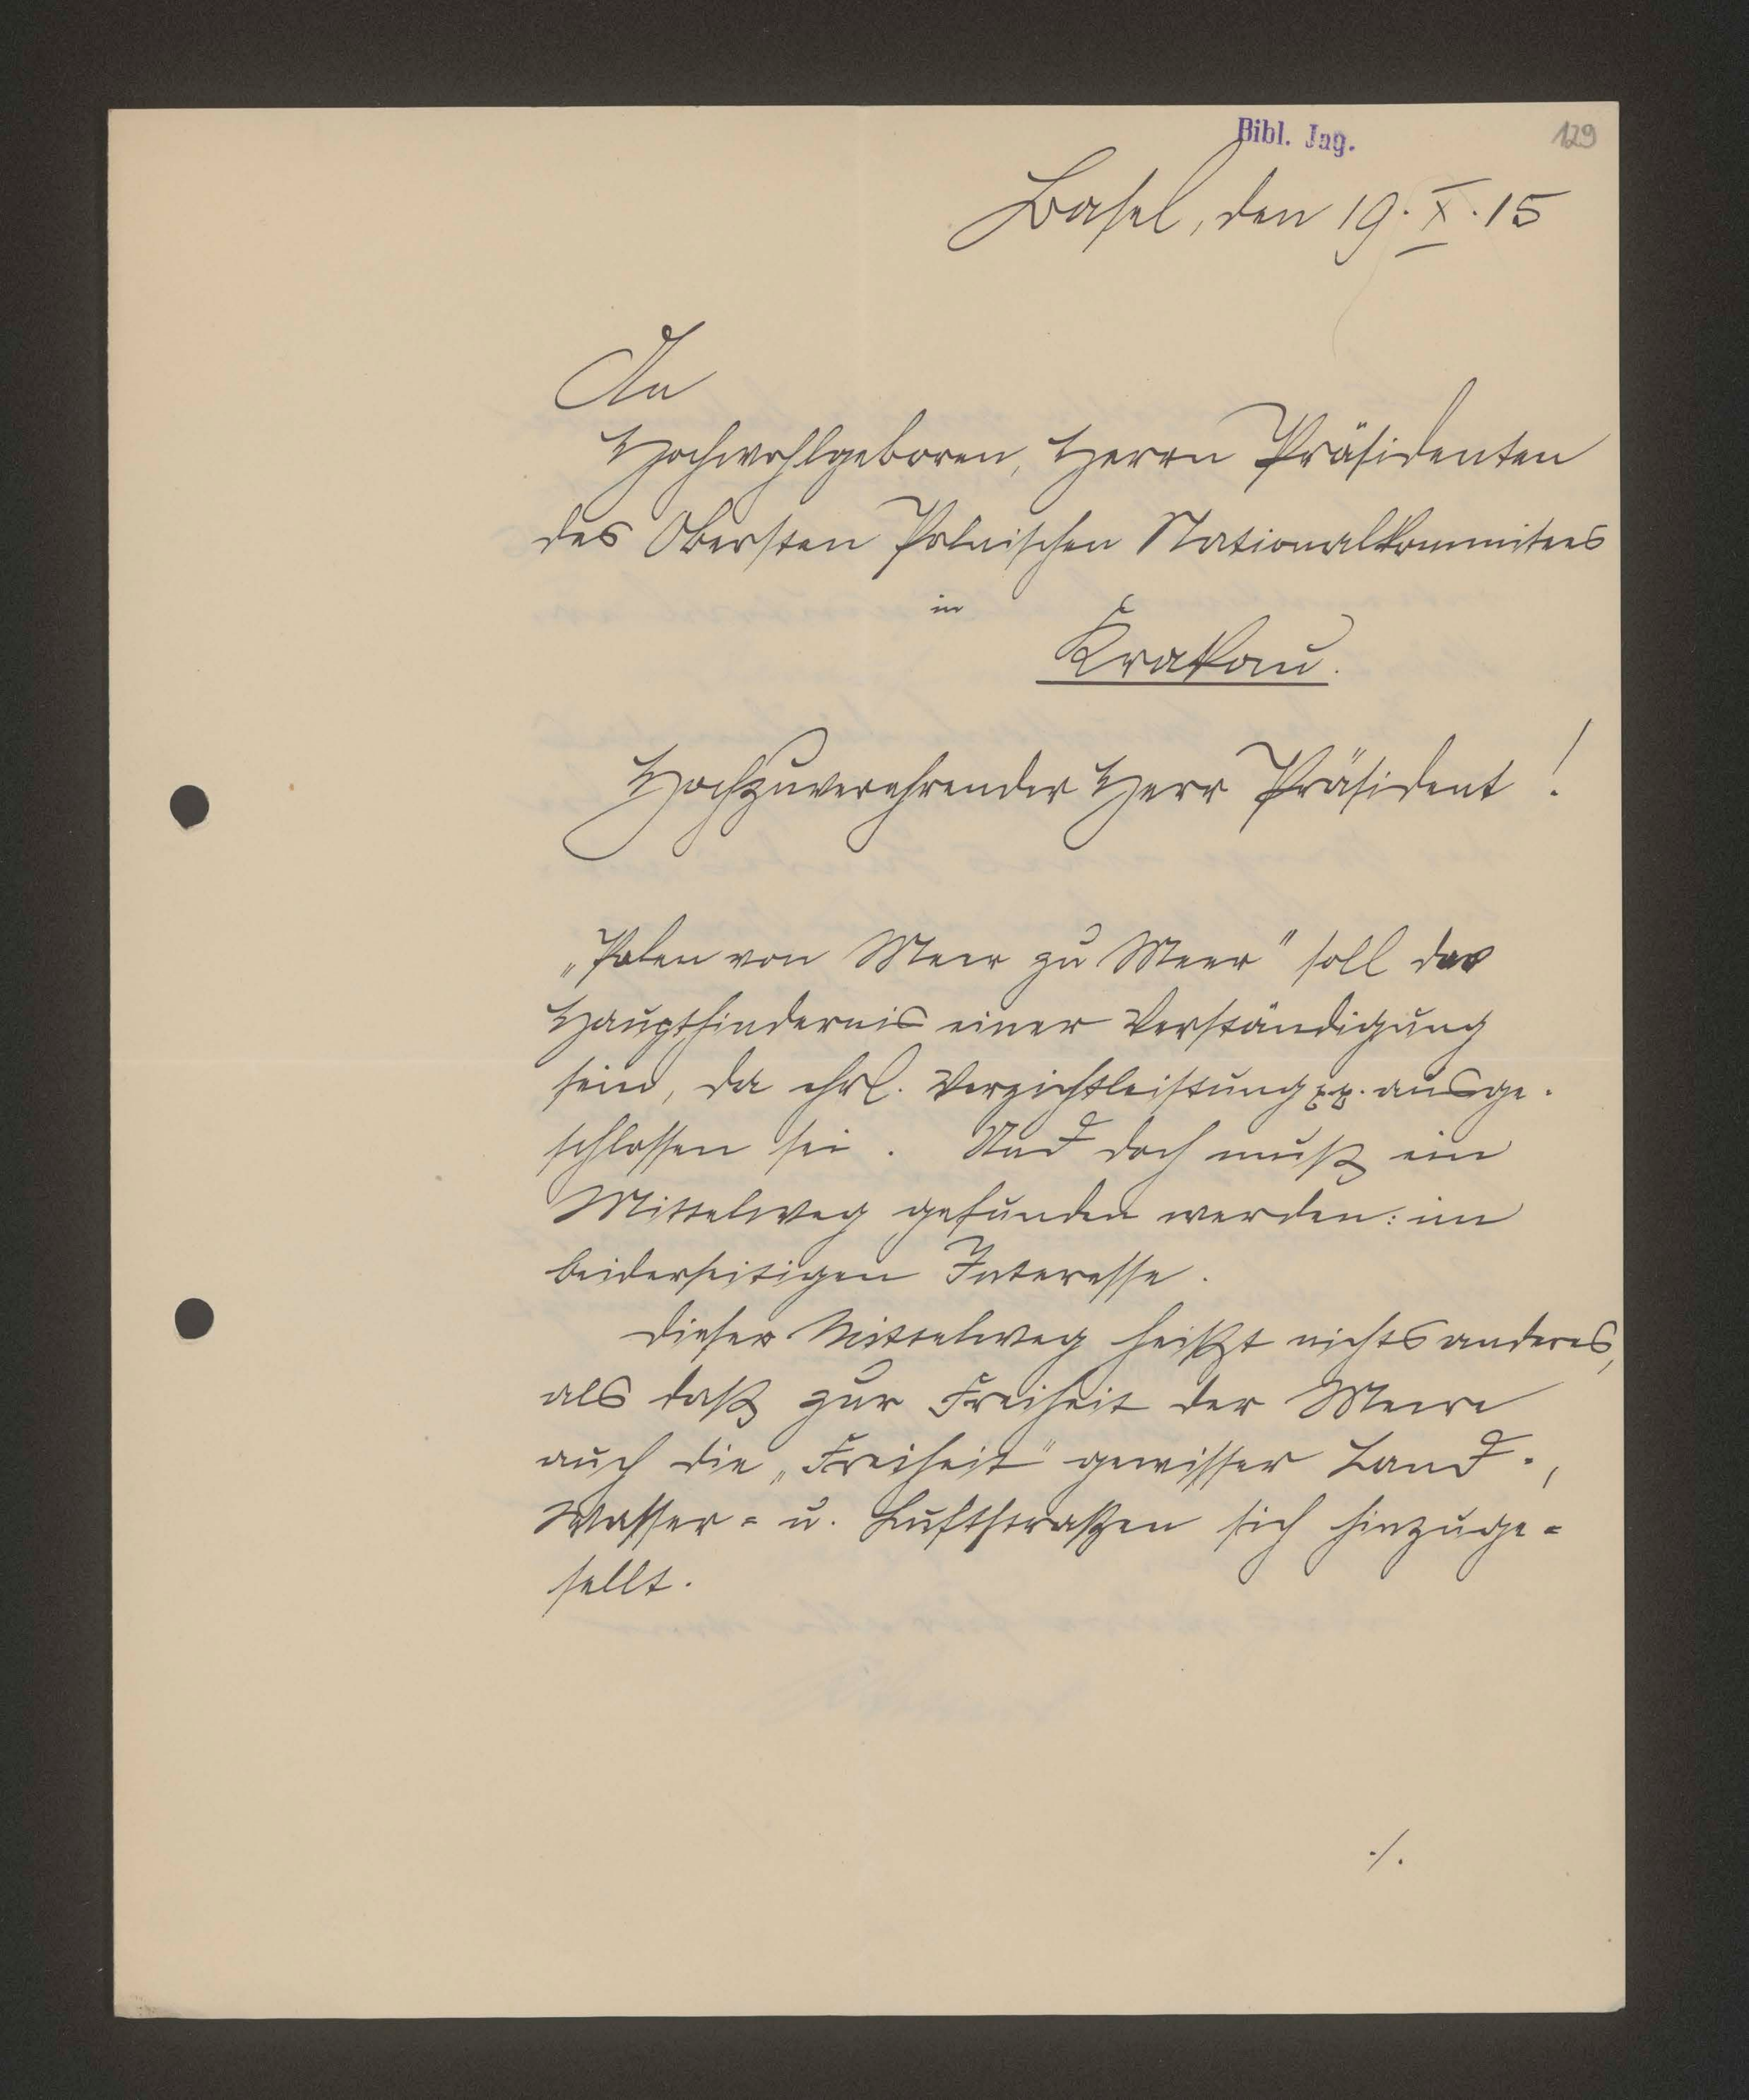 Bibl. Jag.
129
Basel, den 19.X.15
An
Hochwohlgeboren, Herrn Präsidenten
des Obersten Polnischen Nationalkommitees
in
Krakau.
Hochzuverehrender Herr Präsident !
„Polen von Meer zu Meer" soll das
Haupthindernis einer Verständigung
sein, da ehrl. Verzichtleistung pp. ausge-
schlossen sei. Und doch muß ein
Mittelweg gefunden werden: im
beiderseitigen Interesse.
Dieser Mittelweg heißt nichts anderes,
als daß zur Freiheit der Meere
auch die „Freiheit" gewisser Land-,
Wasser= u. Luftstraßen sich hinzuge=
sellt.
./.